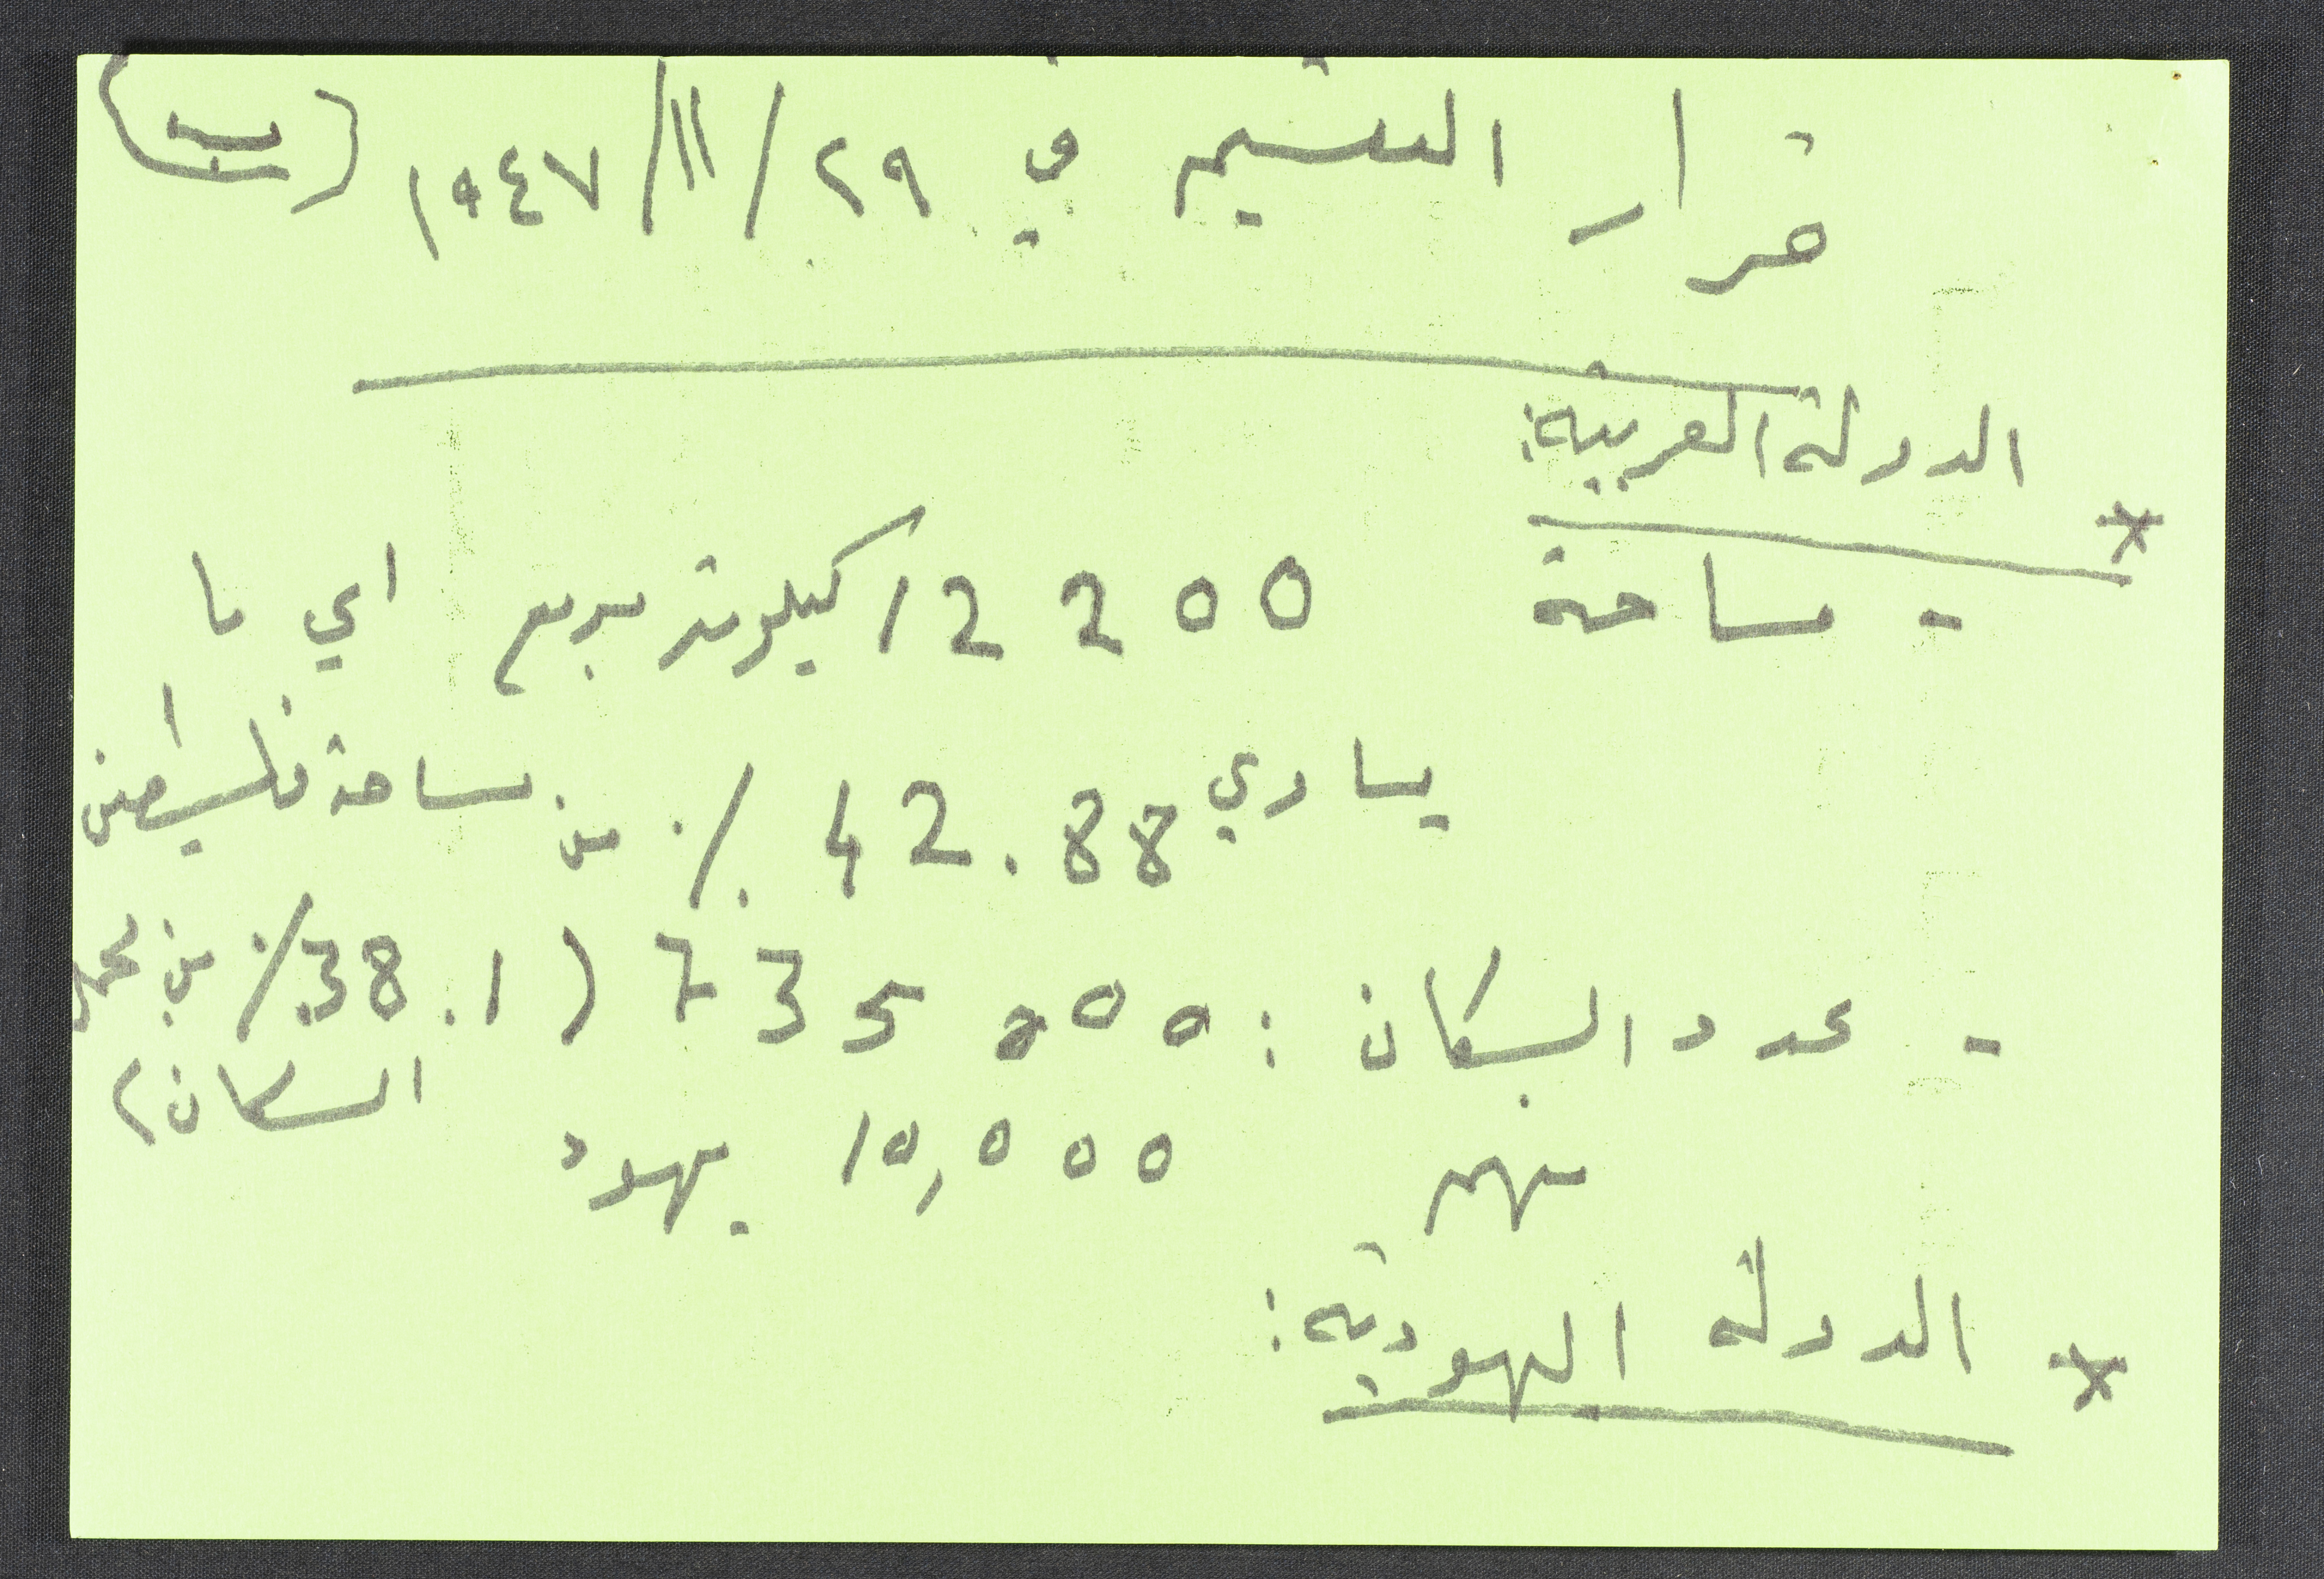 قرار التقسيم في ٢٩/١١/١٩٤٧ (ب)
* الدولة العربية:
- مساحة 12200 كيلومتر مربع اي ما
يساوي 42.88 ٪ من مساحة فلسطين
- عدد السكان: 735000 (38.1٪ من مجمل
السكان)
منهم 10,000 يهود
* الدولة اليهودية: